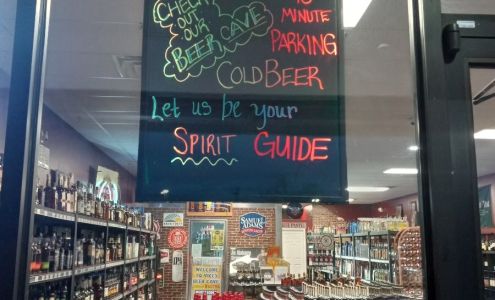 CHECK
OUT
OUR
BEER CAVE
MINUTE
PARKING
COLD BEER
Let us be your
SPIRIT GUIDE
SAMUEL
ADAMS
WELCOME
BEER CAVE